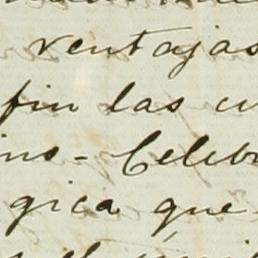 ventajas
fin las cu
ins - Celeb
gica que